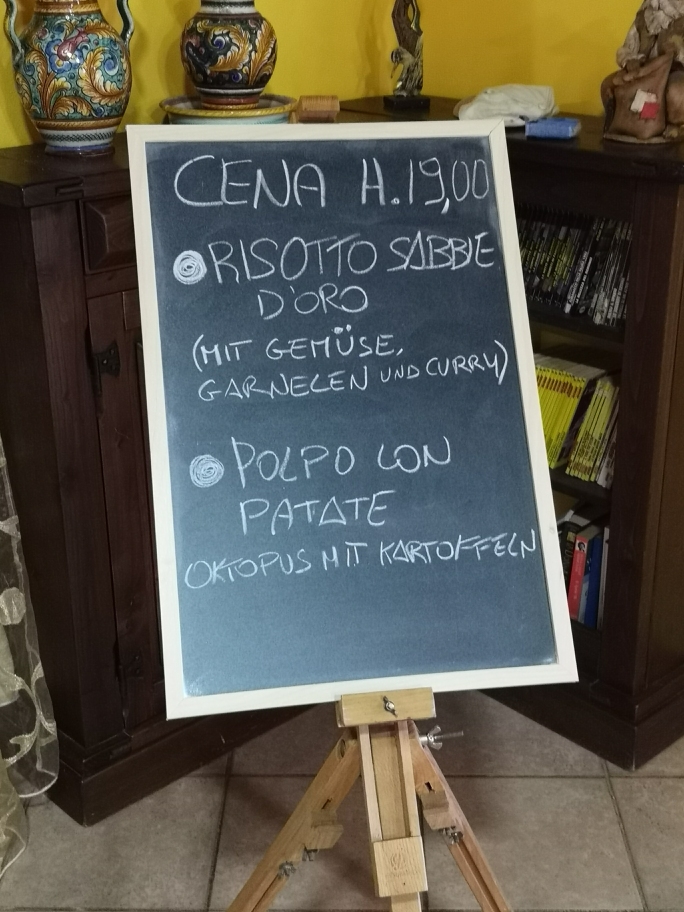 CENA H.19,00
RISOTTO SABBIE
D'ORO
(MIT GEMÜSE,
GARNELEN UND CURRY)
POLPO CON
PATATE
OKTOPUS MIT KARTOFFELN